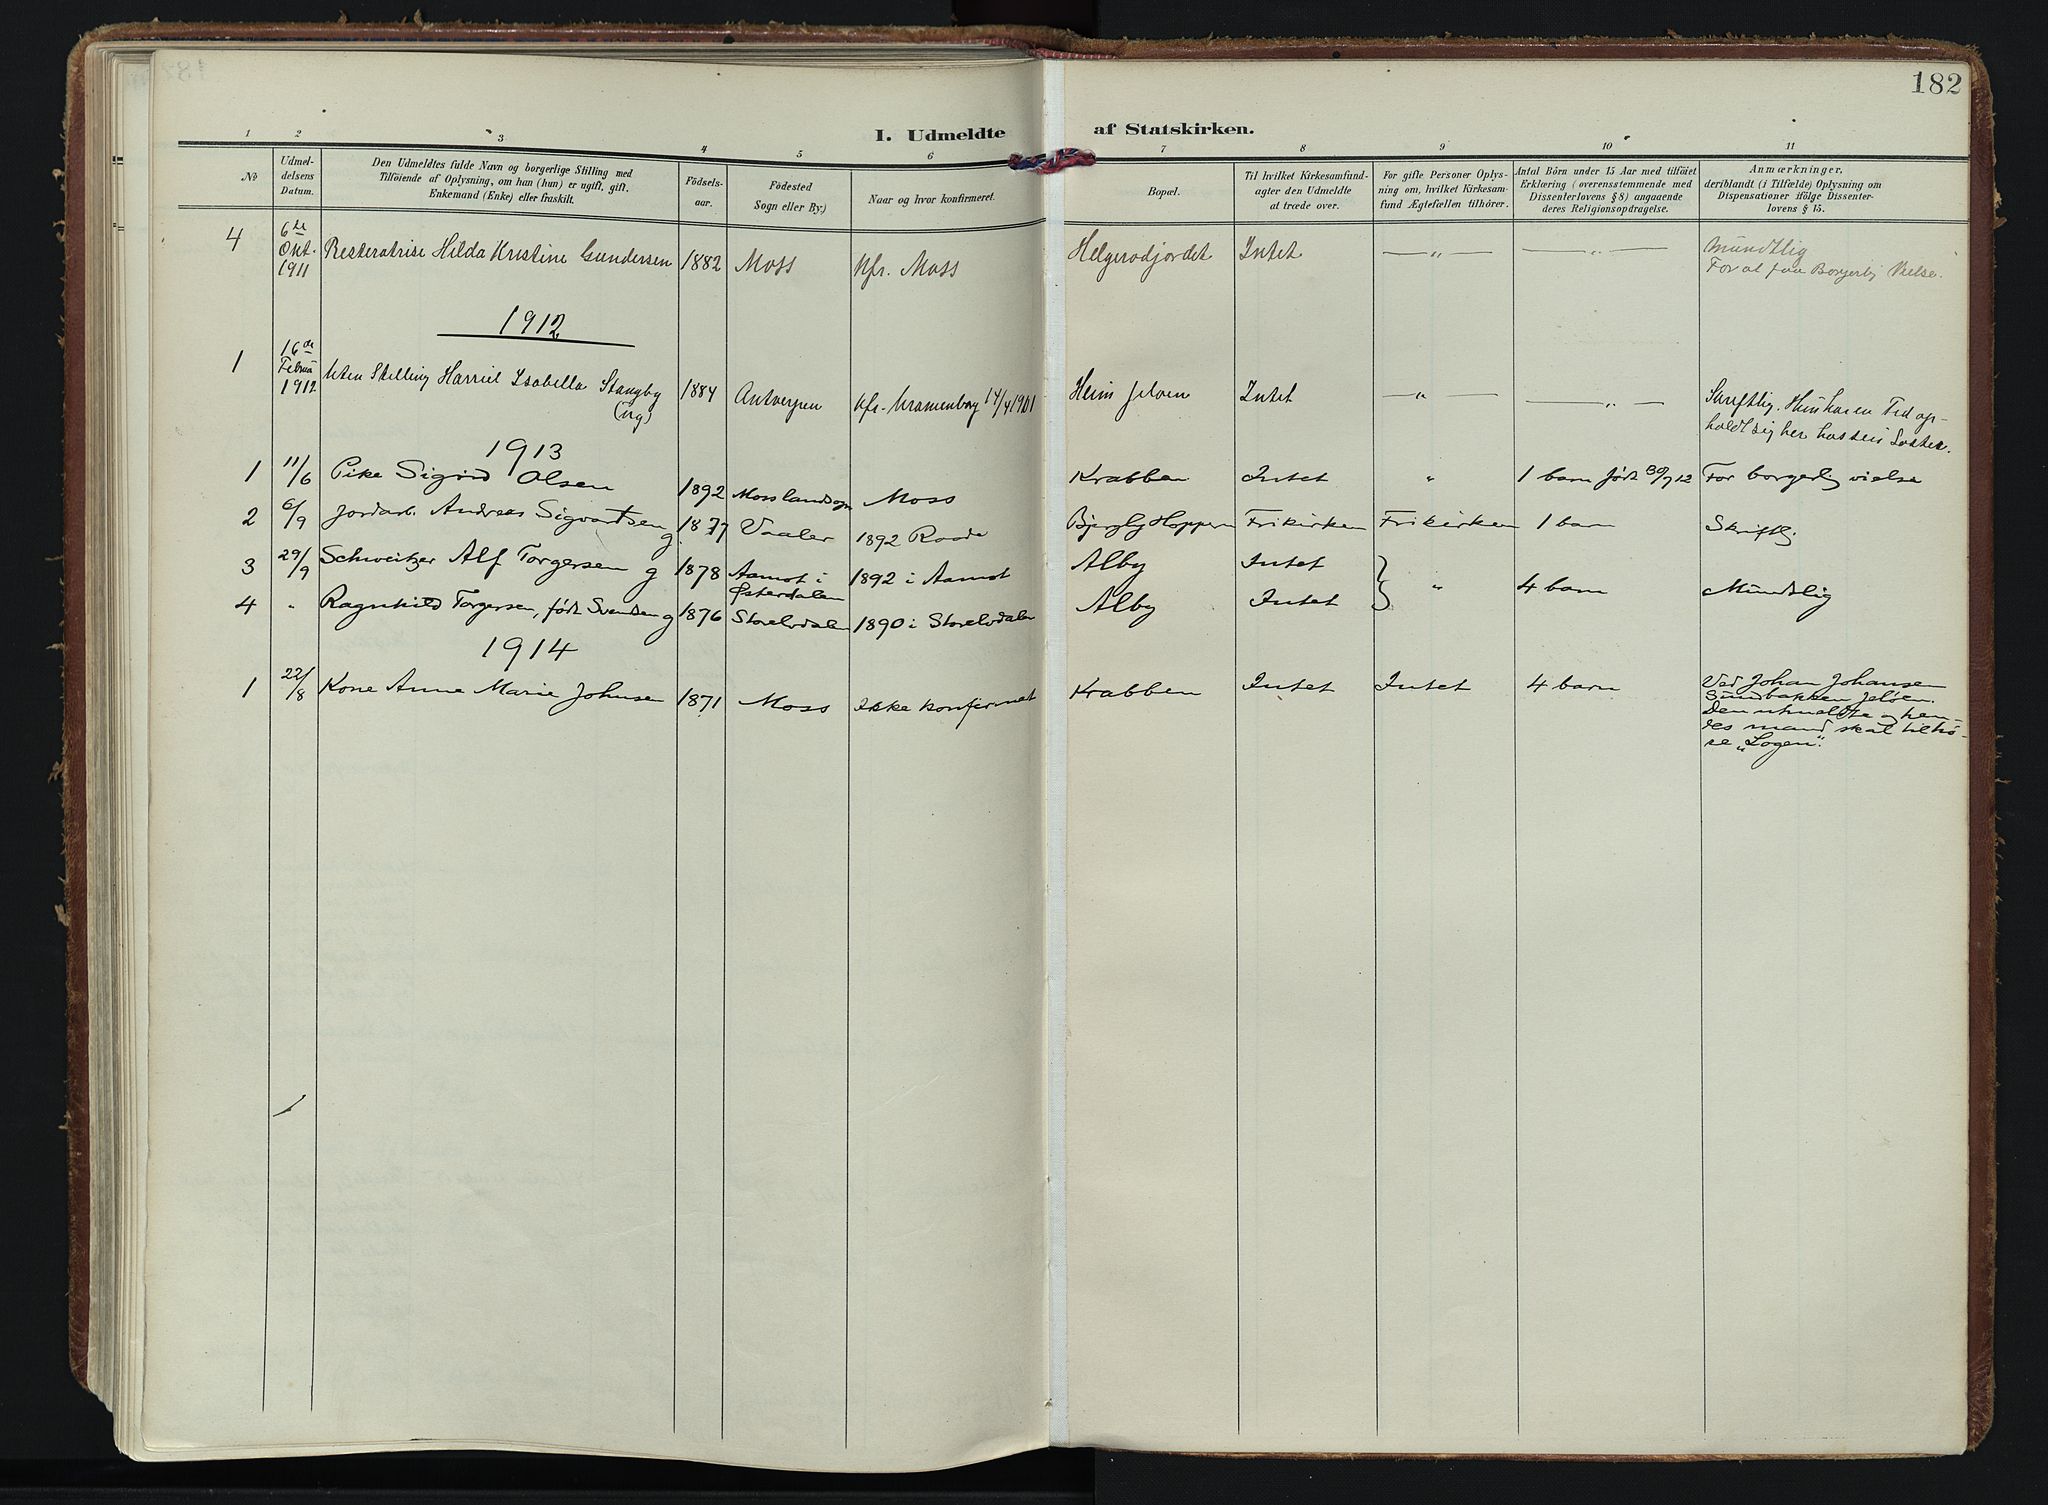 182
I. Udmeldte af Statskirken.
1 2 3 4 5 6 7 8 9 10 11
No
Udmel-
delsens
Datum.
Den Udmeldtes fulde Navn og borgerlige Stilling med
Tilföiende af Oplysning, om han (hun) er ugift, gift,
Enkemand (Enke) eller fraskilt.
Födsels-
aar.
Födested
Sogn eller By.)
Naar og hvor konfirmeret.
Bopæl.
Til hvilket Kirkesamfund-
agter den Udmeldte
at træde over.
For gifte Personer Oplys-
ning om, hvilket Kirkesam-
fund Ægtefællen tilhörer.
Antal Börn under 15 Aar med tilföiet
Erklæring (overensstemmende med
Dissenterlovens § 8) angaaende
deres Religionsopdragelse.
Anmærkninger,
deriblandt (i Tilfælde) Oplysning om
Dispensationer ifölge Dissenter-
lovens § 15.
4 6te Okt. 1911 Hilda Kristine Gundersen 1882 Moss Kfr. Moss Helgerødjordet Intet — „ — — „ — Mundtlig
For at faa Borgerlig Vielse.
1912
1 16de Februar 1912 Uten Stilling Harriet Isabella Stangby (ug) 1884 Antverpen Kfr. 14/4 1901 Heim Jeløen Intet — „ — — „ — Skriftlig. Hun har en Tid op-
holdt sig her hos sin Søster.
1913
1 11/6 Pike Sigrid Olsen 1892 Moss landsogn Moss Krabben Intet „ 1 barn født 30/9 12 For borgerlig vielse
2 6/9 Jordarb. Andreas Sigvartsen g 1877 Vaaler 1892 Raade Hoppern Frikirken Frikirken 1 barn Skriftlig.
3 29/9 Schweitzer Alf Torgersen g 1878 Aamot i Østerdalen 1892 i Aamot Alby Intet } „ 4 barn Mundtlig
4 „ Ragnhild Torgersen, født Svendsen g 1876 Storelvdalen 1890 i Storelvdalen Alby Intet
1914
1 22/8 Kone Anne Marie Johnsen 1871 Moss Ikke konfirmert Krabben Intet Intet 4 barn Ved Johan Johansen
Sundbakken Jeløen.
Den utmeldte og hen-
des mand skal tilhø-
re „Logen“.